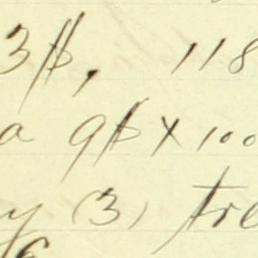 3$, 118
a 9$ x 100
y (3) tre